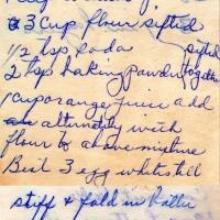 3 cup flour sifted
1/2 tsp soda sifted
2 tsp baking powder together
1 cup orange juice add
alternitly with
flour to above mixture
Beat 3 egg whites till
stiff & fold in batter